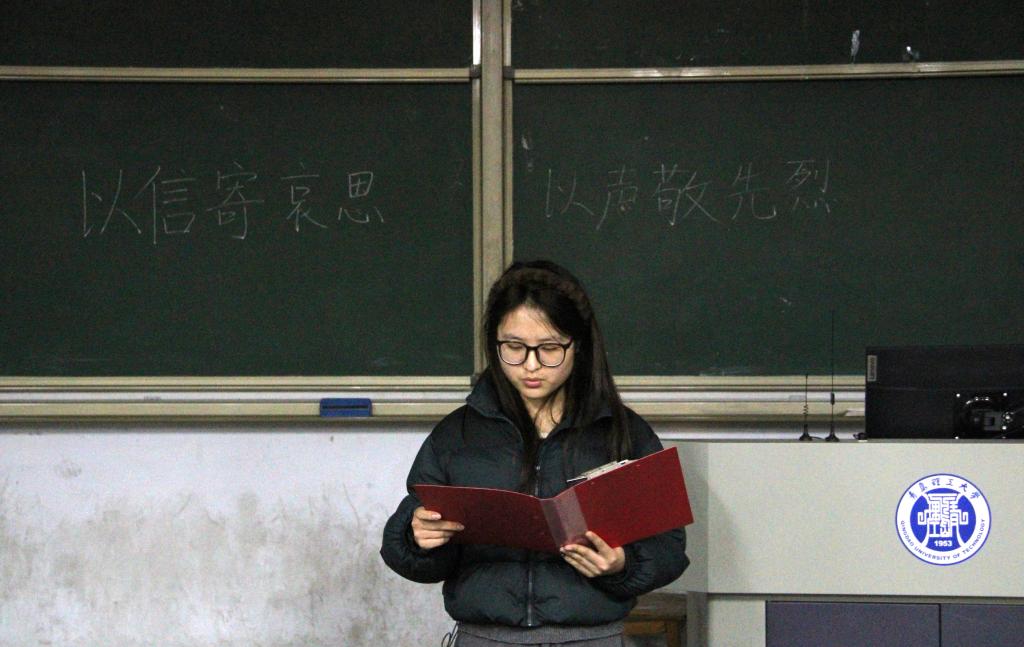 以信寄哀思
以声敬先烈
Lenovo
青岛理工大学
1953
QINGDAO UNIVERSITY OF TECHNOLOGY